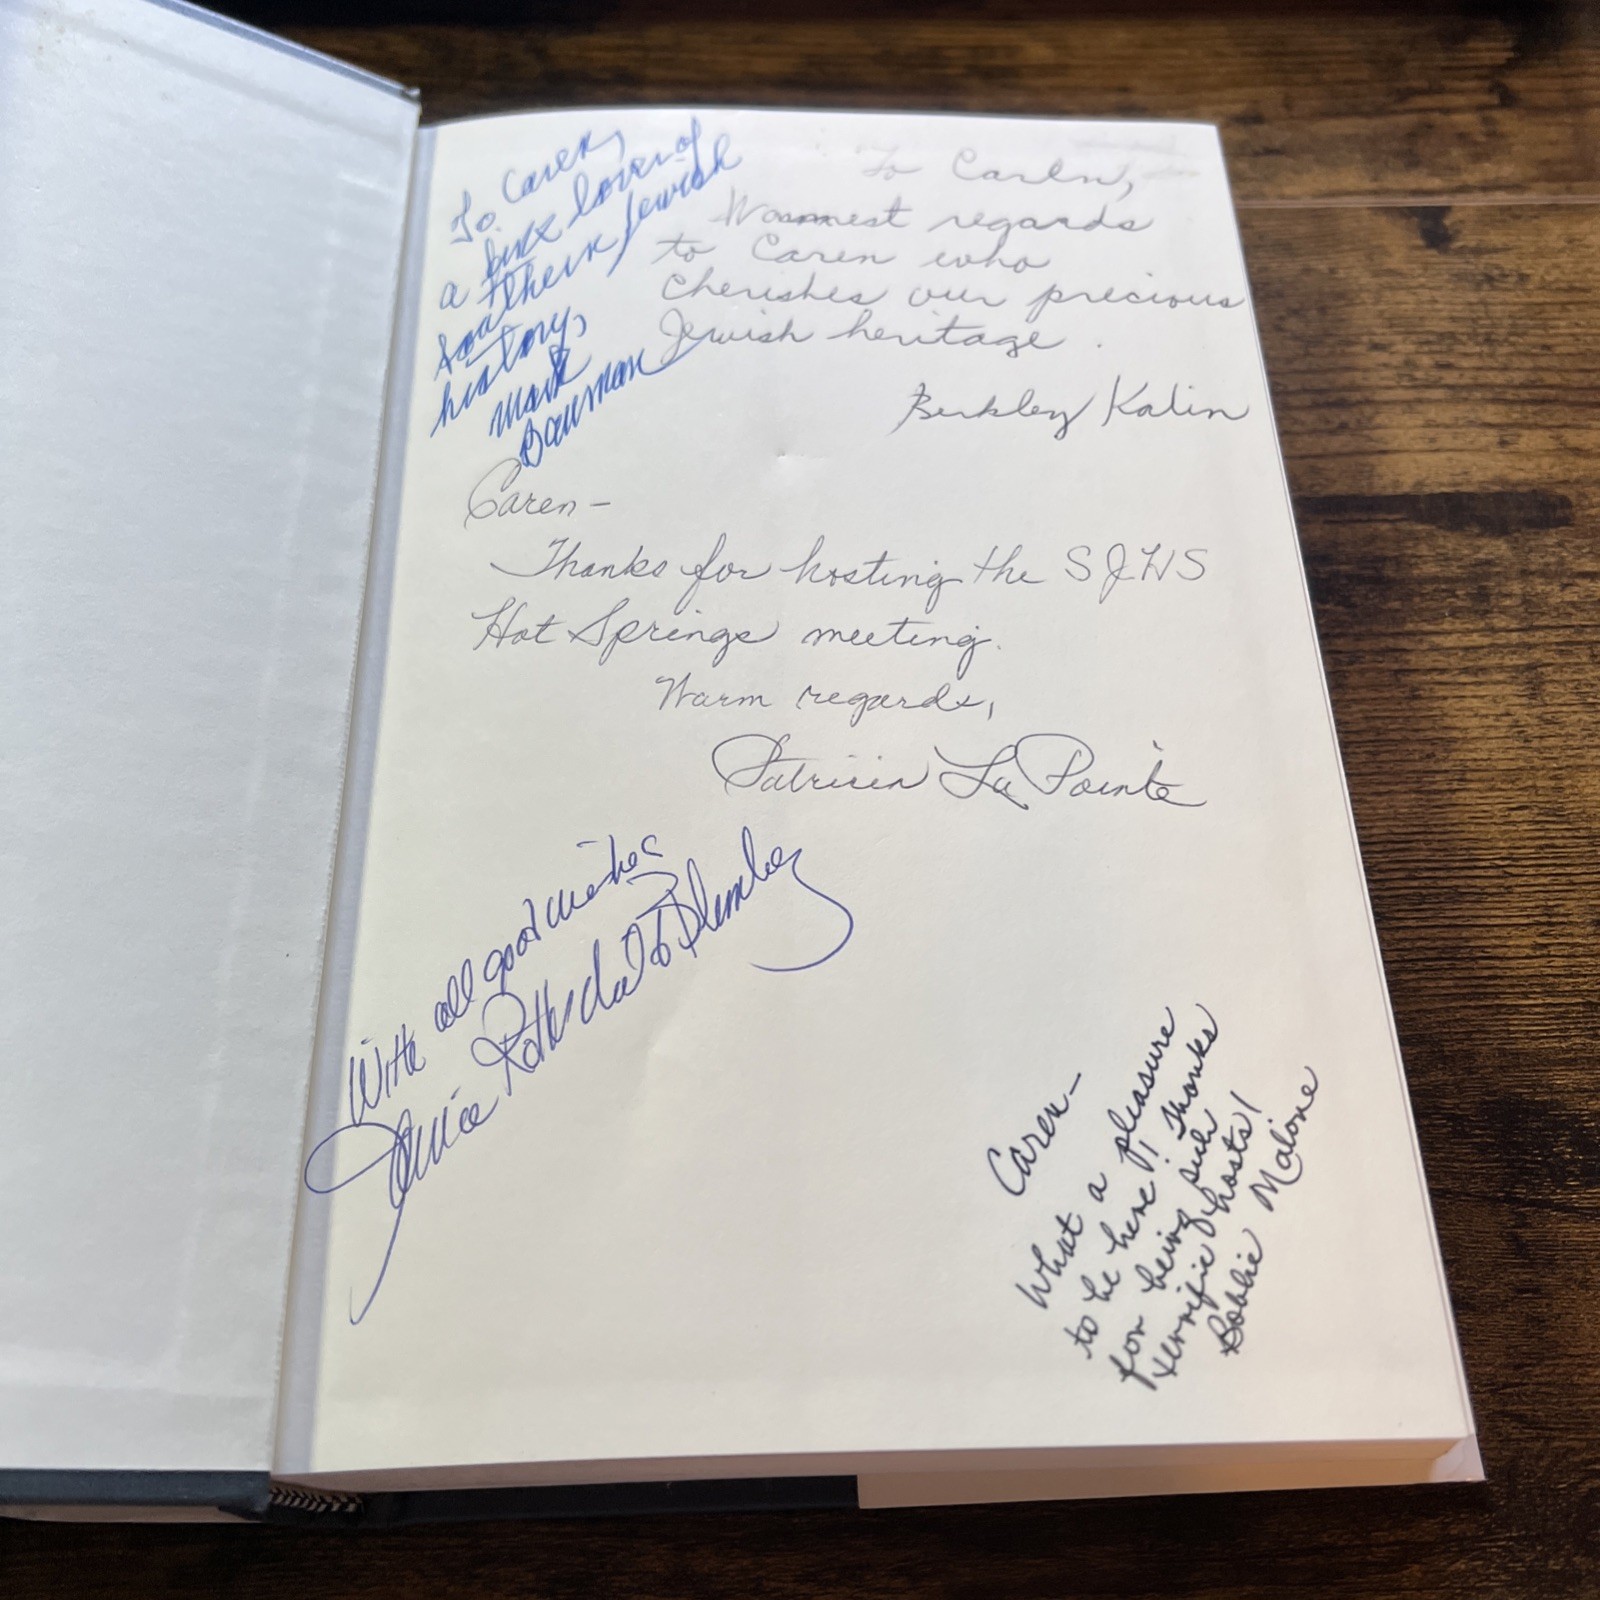 To Caren,
a fine lover of
southern Jewish
history,
Mark
Bauman
To Caren,
Warmest regards
to Caren who
cherishes our precious
Jewish heritage.
Berkley Kalin
Caren-
Thanks for hosting the SJHS
Hot Springs meeting.
Warm regards,
Patricia LaPointe
With all good wishes
Janice Rothschild Blumberg
Caren-
What a pleasure
to be here! Thanks
for being such
terrific hosts!
Bobbie Malone